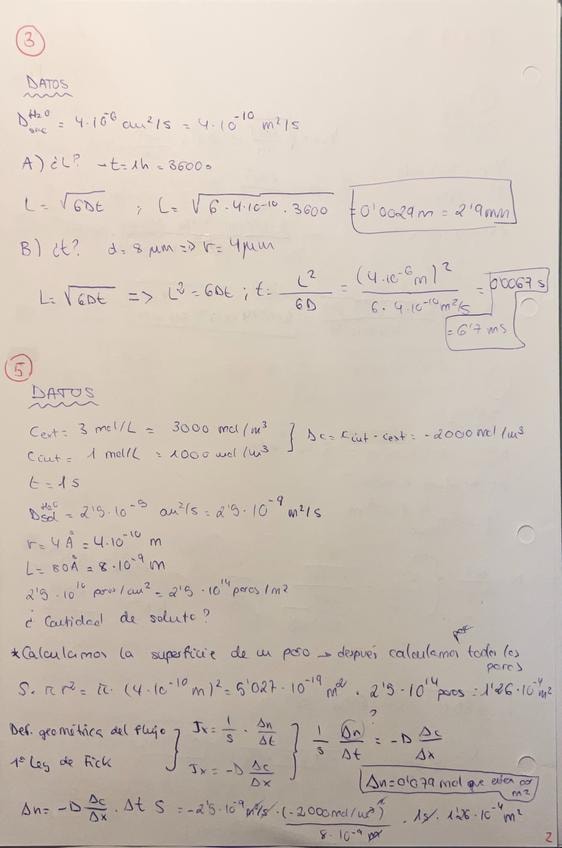 3
DATOS
D H₂O sac = 4·10⁻⁶ cm²/s = 4·10⁻¹⁰ m²/s
A) ¿L? → t=1h = 3600s
L = √6Dt ; L = √6·4·10⁻¹⁰·3600 = 0'0029m = 2'9mm
B) ¿t? d = 8 μm => r = 4μm
L = √6Dt => L² = 6Dt ; t = L²/6D = (4·10⁻⁶m)²/6·4·10⁻¹⁰m²/s = 0'0067 s
= 6'7 ms
5
DATOS
Cext = 3 mol/L = 3000 mol/m³
Cint = 1 mol/L = 1000 mol/m³ } Δc = Cint - Cext = -2000 mol/m³
t = 1s
D H₂O sol = 2'5·10⁻⁵ cm²/s = 2'5·10⁻⁹ m²/s
r = 4 Å = 4·10⁻¹⁰ m
L = 80Å = 8·10⁻⁹ m
2'5·10¹⁰ poros/cm² = 2'5·10¹⁴ poros/m²
¿Cantidad de soluto?
*Calculamos la superficie de un poro → después calculamos todos los poros
S = π r² = π·(4·10⁻¹⁰ m)² = 5'027·10⁻¹⁹ m² · 2'5·10¹⁴ poros = 1'26·10⁻⁴ m²
Def. geométrica del flujo } Jx = 1/S · Δn/Δt
1ª Ley de Fick } Jx = -D Δc/Δx } 1/S Δn/Δt = -D Δc/Δx
?
Δn = 0'079 mol que entra por m²
Δn = -D Δc/Δx · Δt S = -2'5·10⁻⁹ m²/s · (-2000 mol/m³)/8·10⁻⁹ m · 1s · 1'26·10⁻⁴ m²
2